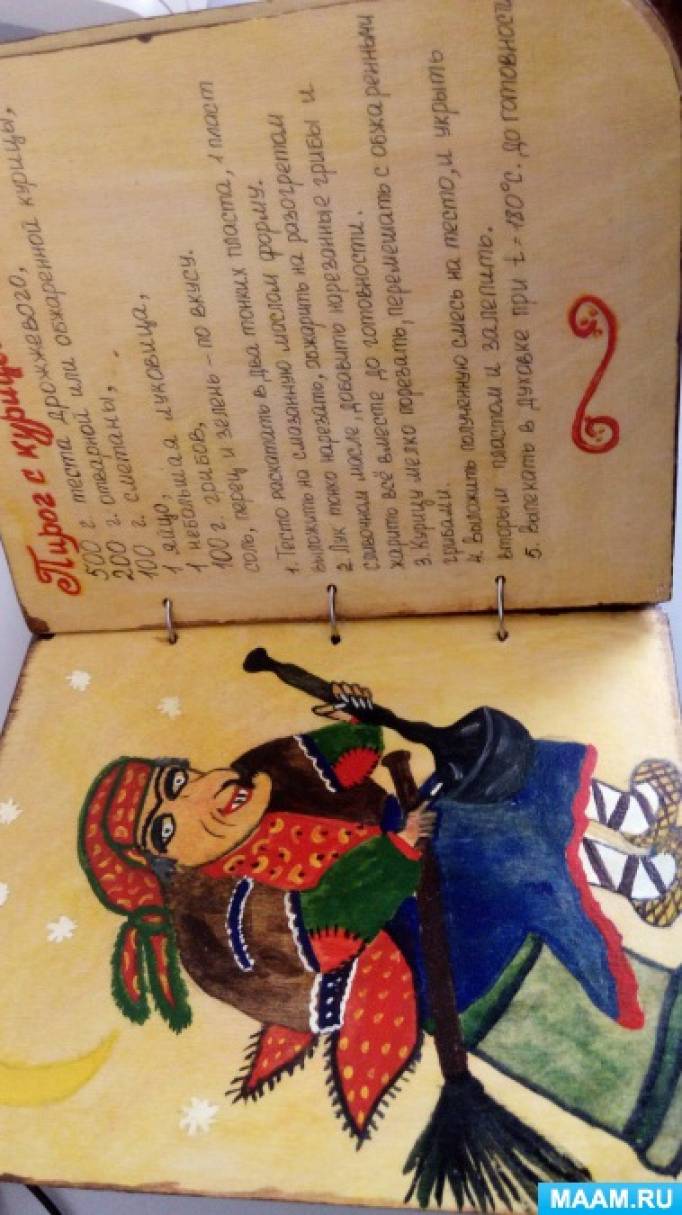 Пирог с курицей
500 г. теста дрожжевого,
200 г. отварной или обжаренной курицы,
100 г. сметаны,
1 яйцо,
1 небольшая луковица,
100 г. грибов,
соль, перец и зелень - по вкусу.
1. Тесто раскатать в два тонких пласта, 1 пласт
выложить на смазанную маслом форму.
2. Лук тонко нарезать, обжарить на разогретам
сливочном масле, добавить нарезанные грибы и
жарить всё вместе до готовности.
3. Курицу мелко порезать, перемешать с обжаренными
грибами.
4. Выложить полученную смесь на тесто, и укрыть
вторым пластом и залепить.
5. Выпекать в духовке при t=180°С. до готовности
MAAM.RU